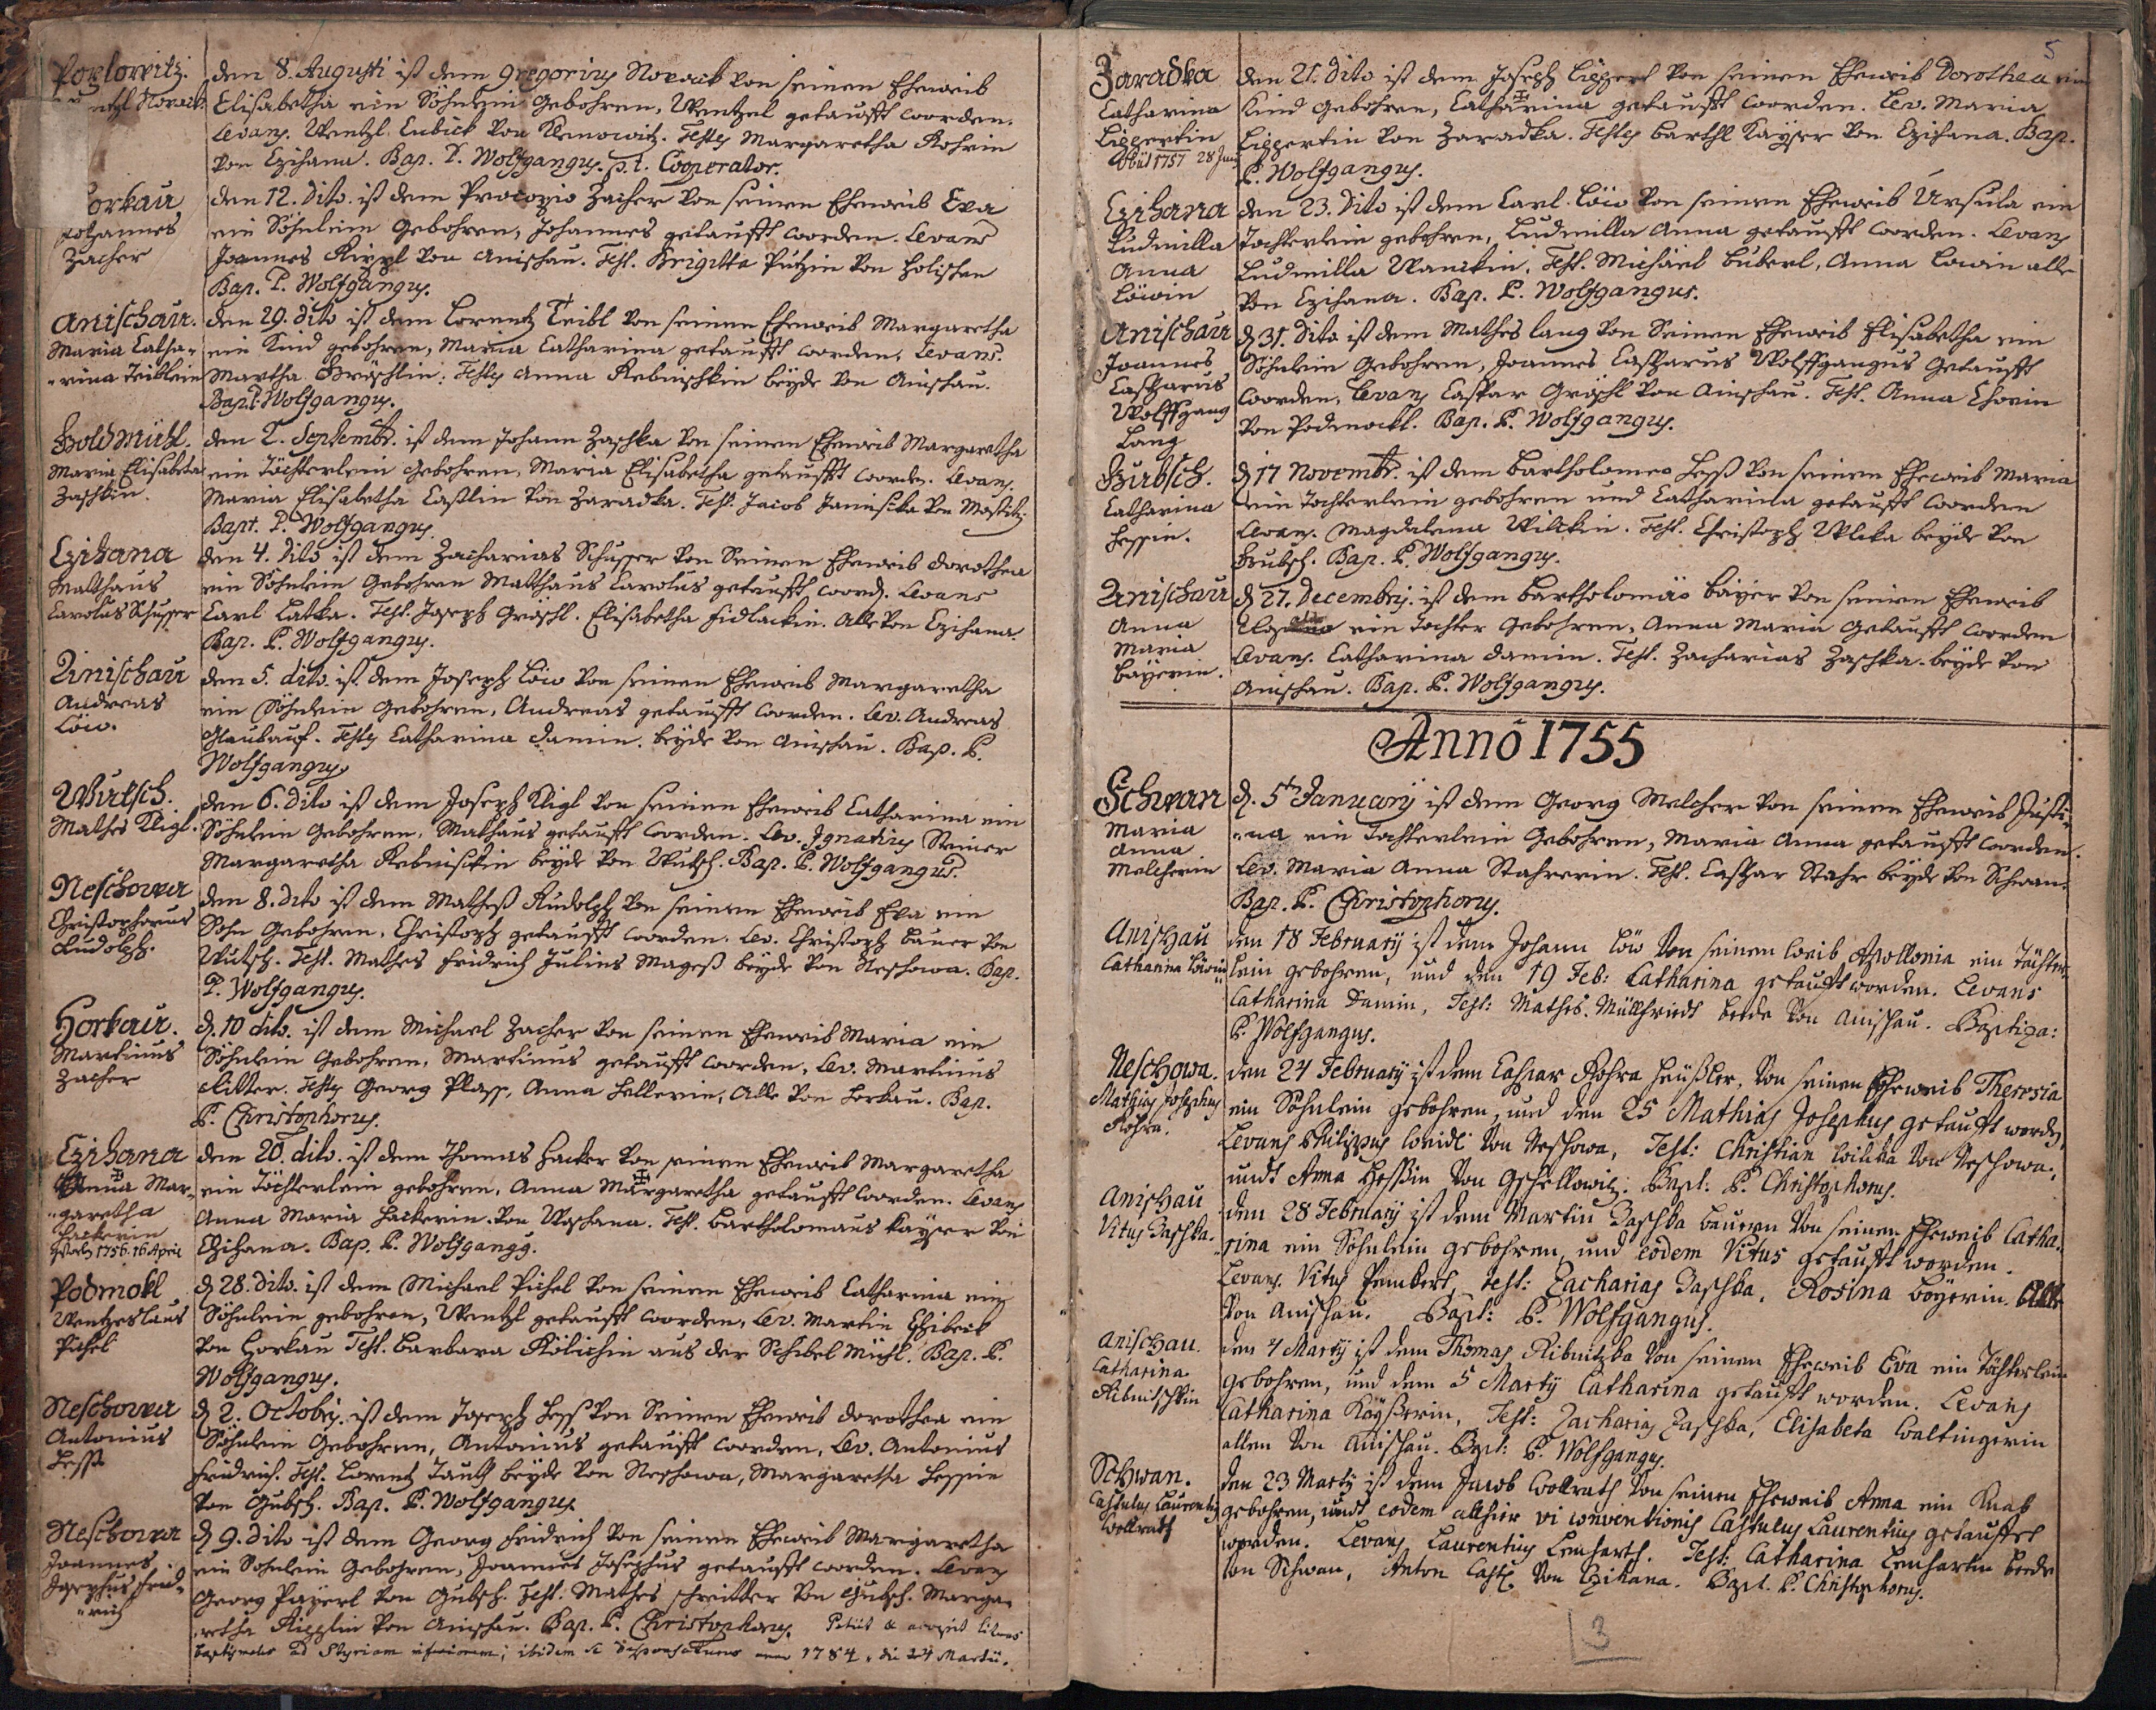 Poxlowitz.
Novack
den 8. Augusti ist dem Gregorius Novack von seinen Eheweib
Elisabetha ein Söhnlein Gebohren, Wentzel getaufft worden.
Levans. Wentzl Lubick von Klenowitz. Testes Margaretha Rohrin
von Czihana. Bap. P. Wolfgangus. p.t. Cooperator.
orkau
Johannes
Zacher
den 12. Dito ist dem Procopio Zacher von seinen Eheweib Eva
ein Söhnlein Gebohren, Johannes getaufft worden. Levans
Joannes Kippl von Anischau. Test. Brigitta Putzin von Holischen
Bap. P. Wolfgangus.
Anischau.
Maria Catha-
-rina Teiblein
den 29. dito ist dem Lorentz Teibl von seinen Eheweib Margaretha
ein Kind gebohren, Maria Catharina getaufft worden. Levans.
Martha Gröschlin: Testes Anna Rebnischkin beyde von Anischau.
Bap. P. Wolfgangus.
Holdmühl.
Maria Elisabeta
Zaschkin.
den 2. Septembr. ist dem Johann Zaschka von seinen Eheweib Margaretha
ein Töchterlein Gebohren, Maria Elisabetha getaufft worden. Levans.
Maria Elisabetha Castlin von Zaradka. Test. Jacob Janischka von
Bapt. P. Wolfgangus.
Czihana
Matthäus
Carolus Schusser
den 4. dito ist dem Zacharias Schusser von Seinen Eheweib Dorothea
ein Söhnlein Gebohren Matthäus Carolus getaufft word. Levans
Carl Latka. Test. Joseph Gröschl. Elisabetha Fidlackin. Alle von Czihana.
Bap. P. Wolfgangus.
Anischau
Andreas
Löw.
den 5. dito ist dem Joseph Löw von seinen Eheweib Margaretha
ein Söhnlein Gebohren, Andreas getaufft worden. Lev. Andreas
Glaubauf. Testes Catharina Damin. beyde von Anischau. Bap. P.
Wolfgangus
Wutsch.
Mathes Kligl.
den 6. dito ist dem Joseph Kligl von seinen Eheweib Catharina ein
Söhnlein Gebohren, Mathäus getaufft worden. Lev. Ignatius Steiner
Margaretha Rebnischkin beyde von Wutsch. Bap. P. Wolfgangus.
Neschowa
Christophorus
Rudolph.
den 8. dito ist dem Matheß Rudolph von seinen Eheweib Eva ein
Sohn Gebohren, Christoph getaufft worden. Lev. Christoph Bauer von
Wutsch. Test. Mathes Fridrich Julius Mageß beyde von Neschowa. Bap.
P. Wolfgangus.
Horkau.
Martinus
Zacher
d. 10 dito. ist dem Michael Zacher von seinen Eheweib Maria ein
Söhnlein Gebohren, Martinus getaufft worden, Lev. Martinus
Ritter. Testes Georg Plass, Anna Hellerin, Alle von Horkau. Bap.
P. Christophorus.
Czihana
Anna Mar-
-garetha
Hackerin
1756. 16 April
den 20. dito. ist dem Thomas Hacker von seinen Eheweib Margaretha
ein Töchterlein gebohren, Anna Margaretha getaufft worden. Levans
Anna Maria Hackerin von Woschana. Test. Bartholomäus Kayser von
Czihana. Bap. P. Wolfgangg.
Podmokl
Wentzeslaus
Pichel
d. 28. dito. ist dem Michael Pichel von seinem Eheweib Catharina ein
Söhnlein gebohren, Wentzl getaufft worden, Lev. Martin
von Horkau Test. Barbara Kölichin aus der Schibel Mühl. Bap. P.
Wolfgangus.
Neschowa
Antonius
Hesß
d. 2. Octobris. ist dem Joseph Hess von Seinen Eheweib Dorothea ein
Söhnlein Gebohren, Antonius getaufft worden, Lev. Antonius
Fridrich. Test. Lorentz Tauth beyde von Neschowa, Margaretha Hessin
von Gubsch. Bap. P. Wolfgangus
Neschowa
Joannes
Josephus Frid-
-rich
d. 9. dito ist dem Georg Fridrich von seinen Eheweib Margaretha
ein Söhnlein Gebohren, Joannes Josephus getaufft worden. Levans
Georg Payerl von Gubsch. Test. Mathes Schreitter von Gubsch. Marga-
-retha Kipplin von Anischau. Bap. P. Christophorus. Petiit & accepit literas
baptismales ad Styriam inferiorem; ibidem se desponsaturus anno 1784, die 24 Martii.
5
Zaradka
Catharina
Lippertin
Obiit 1757 28 Juny
den 21. dito ist dem Joseph Lippert von seinen Eheweib Dorothea ein
Kind gebohren, Catharina getaufft worden. Lev. Maria
Lippertin von Zaradka. Testes Barthl Kayser von Czihana. Bap.
P. Wolfgangus.
Czihana
Ludmilla
Anna
Löwin
den 23. dito ist dem Carl Löw von seinen Eheweib Ursula ein
Tochterlein gebohren, Ludmilla Anna getaufft worden. Levans
Ludmilla Wanckin, Test. Michael Buberl, Anna Löwin alle
von Czihana. Bap. P. Wolfgangus.
Anischau
Joannes
Casparus
Wolffgang
Lang
d. 31. dito ist dem Mathes Lang von Seinen Eheweib Elisabetha ein
Söhnlein Gebohren, Joannes Casparus Wolffgangus Getaufft
worden, Levans Caspar Gröschl von Anischau. Test. Anna Chorin
von Podmockl. Bap. P. Wolfgangus.
Gubsch.
Catharina
Hessin.
d. 17 Novembr. ist dem Bartholomeo Heß von seinen Eheweib Maria
ein Tochterlein gebohren und Catharina getaufft worden
Levans. Magdalena Wilckin. Test. Christoph Wlcka beyde von
Gubsch. Bap. P. Wolfgangus.
Anischau
Anna
Maria
Bayerin.
d. 27. Decembris. ist dem Bartholomäo Bayer von seinen Eheweib
ein Tochter Gebohren, Anna Maria Getaufft worden
Levans. Catharina Damin. Test. Zacharias Zaschka beyde von
Anischau. Bap. P. Wolfgangus.
Anno 1755
Schwan
Maria
Anna
Melcherin
d. 5t January ist dem Georg Melcher von seinem Eheweib Justi-
-na ein Tochterlein Gebohren, Maria Anna getaufft worden.
Lev. Maria Anna Stahrerin. Test. Caspar Stahr beyde von Schwan.
Bap. P. Christophorus.
Anischau
Catharina Löwin
den 18 February ist dem Johann Löw von seinen Weib Apollonia ein Töchter-
lein gebohren, und den 19 Feb: Catharina getaufft worden. Levans
Catharina Damin, Test: Mathes Müllfriedt beede von Anischau. Baptiza:
P. Wolfgangus.
Neschowa.
Mathias Josephus
Rohra.
den 24 February ist dem Caspar Rohra Häußler, von seinen Eheweib Theresia
ein Söhnlein gebohren, und den 25 Mathias Josephus getaufft worden,
Levans Philippus Weidl von Neschowa, Test: Christian Wilcka von Neschowa,
undt Anna Hessin von Gschellowitz. Bapt. P. Christophorus.
Anischau
Vitus Zaschka.
den 28 February ist dem Martin Zaschka Bauern von seinen Eheweib Catha-
rina ein Söhnlein gebohren, und eodem Vitus getaufft worden.
Levans. Vitus Pimbert, test: Zacharias Zaschka, Rosina Böyerin. Alle
von Anischau. Bapt: P. Wolfgangus.
Anischau.
Catharina
Ribnitschkin
den 4 Marty ist dem Thomas Ribnitzka von seinen Eheweib Eva ein Töchterlein
gebohren, und dem 5 Marty Catharina getaufft worden. Levans
Catharina Kayßerin, Test: Zacharias Zaschka, Elisabeta Waltingerin
allen von Anischau. Bapt: P. Wolfgangus.
Schwan.
Castulus Laurentius
Wollrath
den 23 Marty ist dem Jacob Wollrath von seinen Eheweib Anna ein Knab
gebohren, undt eodem allhier vi conventionis Castulus Laurentius getauffet
worden. Levans Laurentius Lenharth. Test: Catharina Lenhartin beede
von Schwan, Anton Cast. von Czihana. Bapt. P. Christophorus.
3